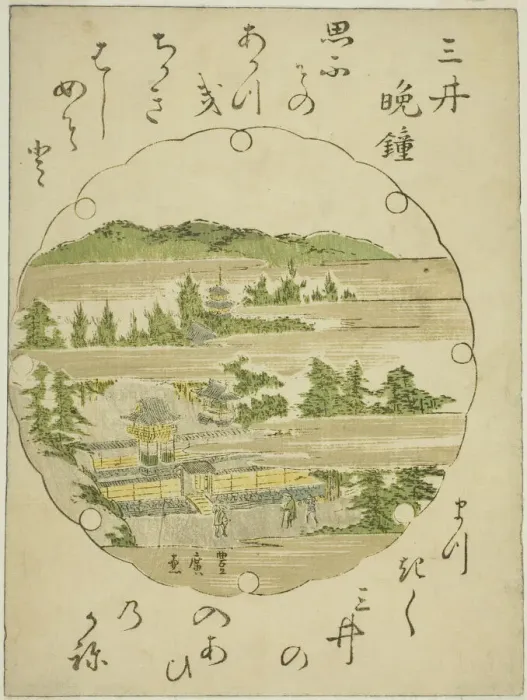 三井
晩鐘
思ふ
その
あかつ
き
ちきる
はし
めそ
と
まつ
きく
三井
の
入あ
ひ
乃
かね
豐廣画